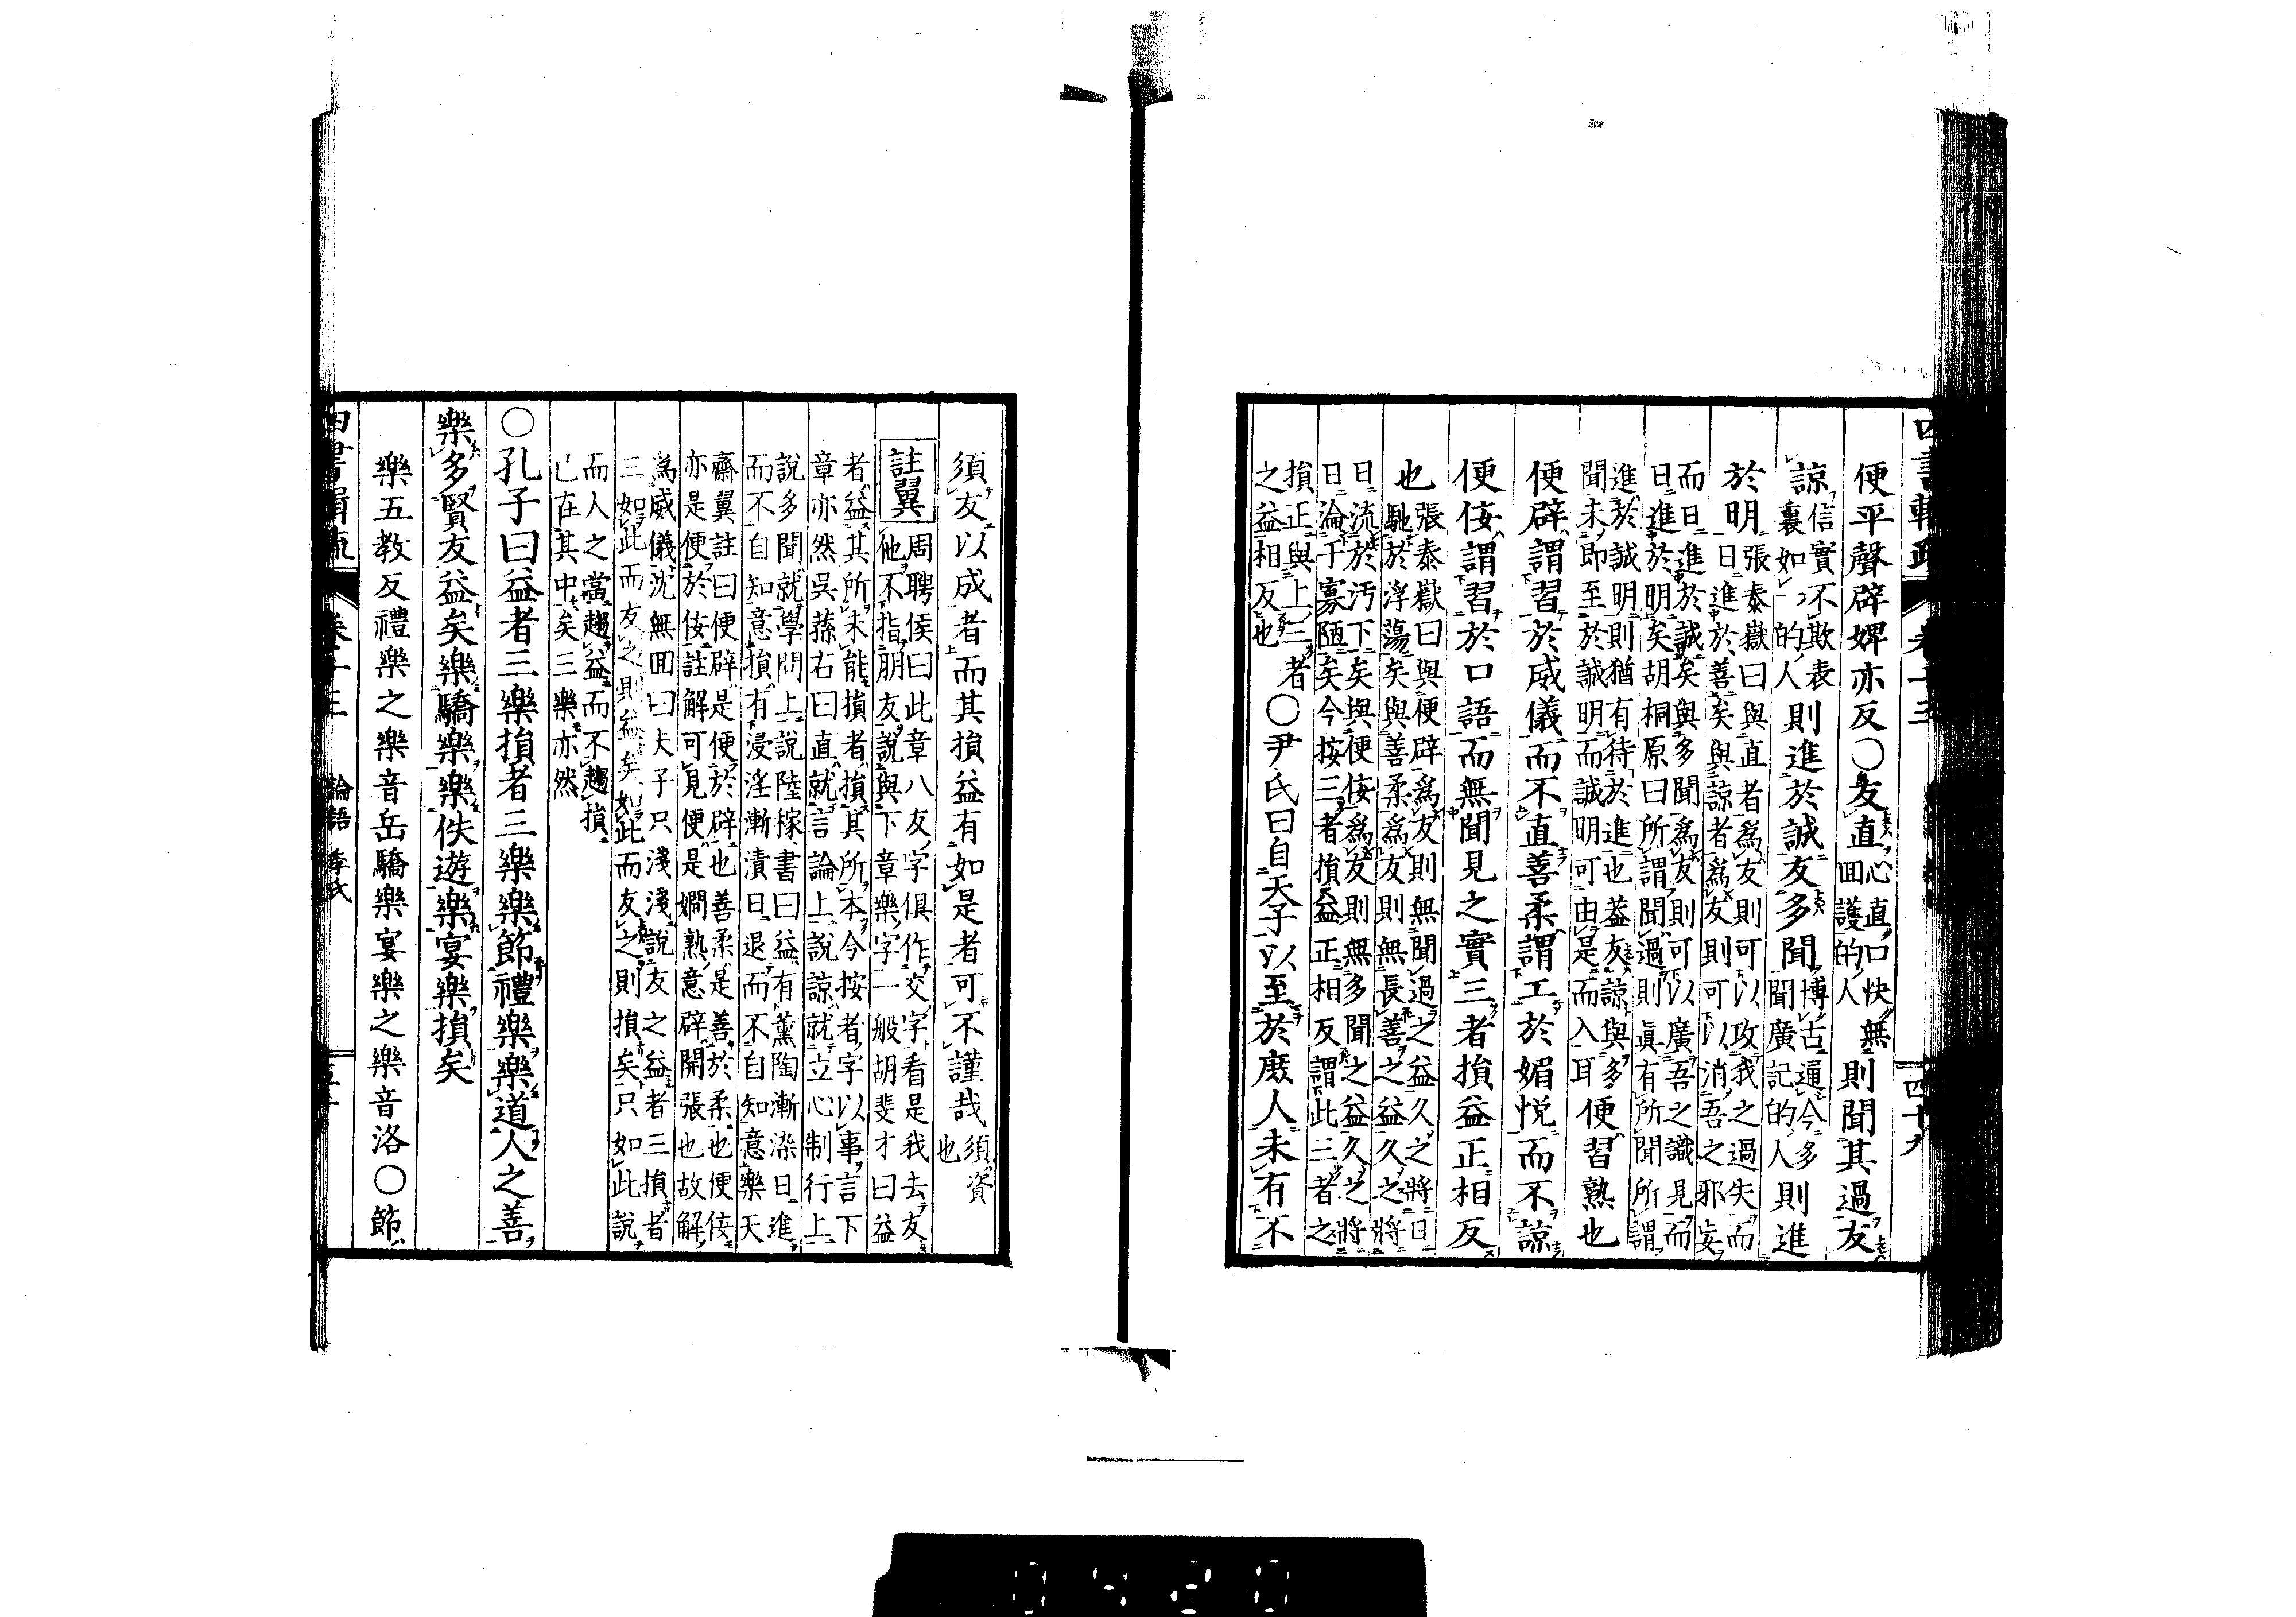 四書輯疏 卷十三 四十九
便平聲辟婢亦反○友直心直口快無回護的人則聞其過友
諒信實不欺表裏如一的人則進於誠友多聞博古通今多聞廣記的人則進
於明張泰嶽曰與直者爲友則可以攻我之過失而日進於善矣與諒者爲友則可以消吾之邪妄
而日進於誠矣與多聞爲友則可以廣吾之識見而日進於明矣胡桐原曰所謂聞過則眞有所聞所謂
進於誠明則猶有待於進也葢友諒與多聞未即至於誠明而誠明可由是而入耳便習熟也
便辟謂習於威儀而不直善柔謂工於媚悅而不諒
便佞謂習於口語而無聞見之實三者損益正相反
也張泰嶽曰與便辟爲友則無聞過之益久之將日馳於浮蕩矣與善柔爲友則無長善之益久之將
日流於汚下矣與便佞爲友則無多聞之益久之將日淪于寡陋矣今按三者損益正相反謂此三者之
損正與上三者之益相反也○尹氏曰自天子以至於庶人未有不
須友以成者而其損益有如是者可不謹哉須資也
註翼周聘侯曰此章八友字俱作交字看是我去友他不指朋友說與下章樂字一般胡斐才曰益
者益其所未能損者損其所本今按者字以事言下章亦然吳蓀右曰直就言論上說諒就立心制行上
說多聞就學問上說陸稼書曰益有薰陶漸染日進而不自知意損有浸淫漸漬日退而不自知意樂天
齋翼註曰便辟是便於辟也善柔是善於柔也便佞亦是便於佞註解可見便是嫺熟意辟開張也故解
爲威儀沈無回曰夫子只淺淺說友之益者三損者三如此而友之則益矣如此而友之則損矣只如此說
而人之當趨益而不趨損已在其中矣三樂亦然
○孔子曰益者三樂損者三樂樂節禮樂樂道人之善
樂多賢友益矣樂驕樂樂佚遊樂宴樂損矣
樂五教反禮樂之樂音岳驕樂宴樂之樂音洛○節
四書輯疏 卷十三 論語 季氏 五十
0420